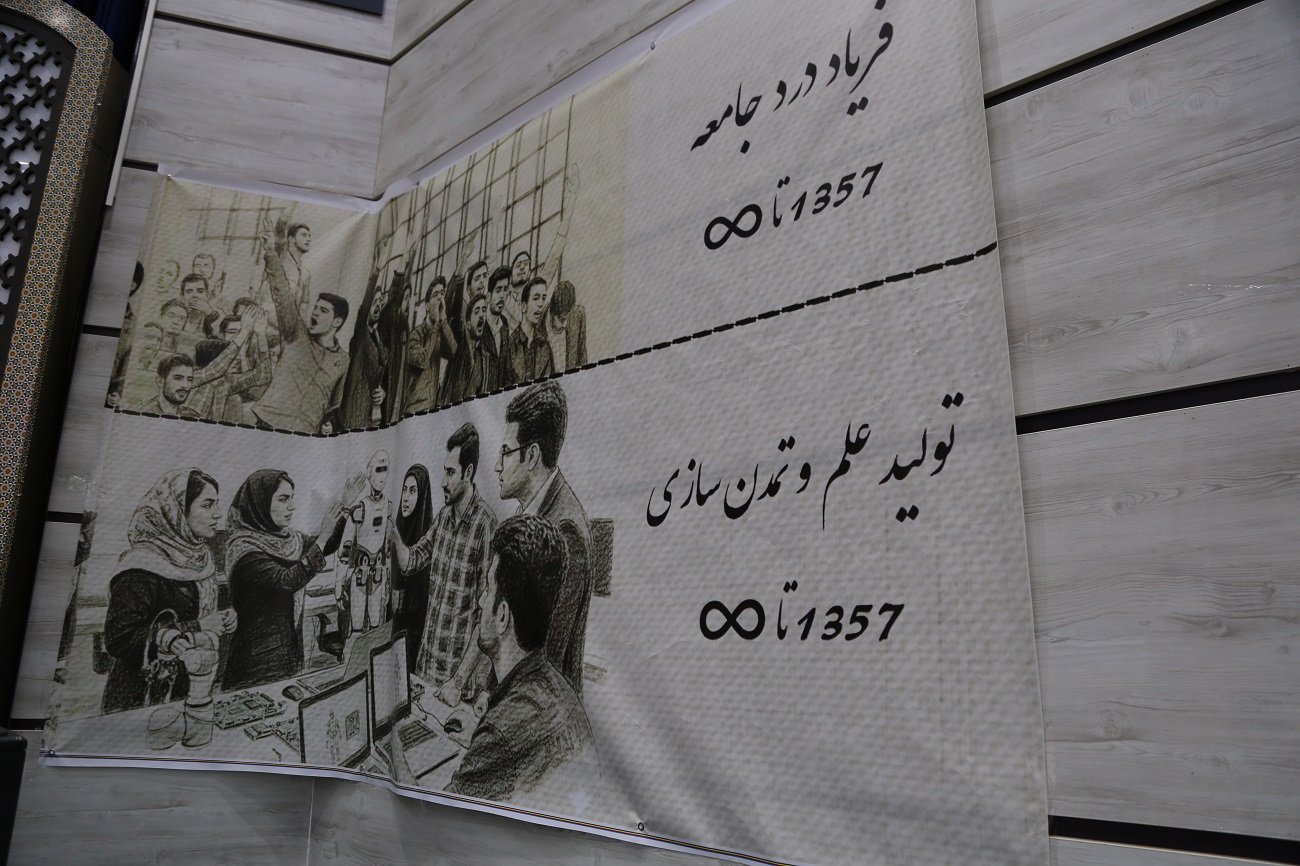 فریاد درد جامعه
1357 تا ∞
تولید علم و تمدن سازی
1357 تا ∞